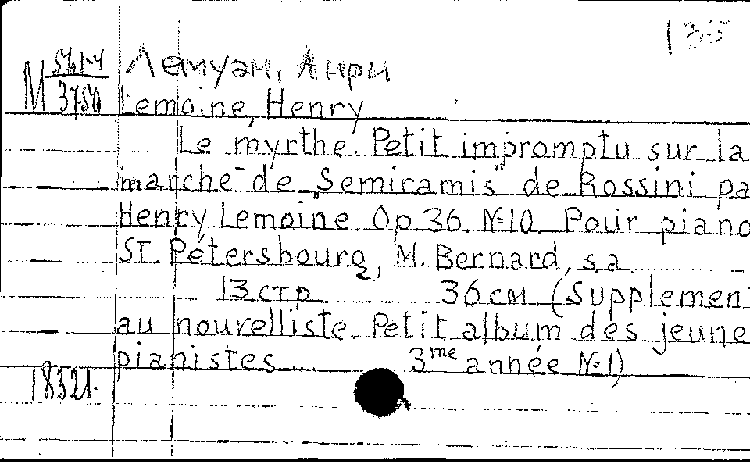 135
М 561-4 Лемуан, Анри
3750 Lemoine, Henry
Le myrthe. Petit impromptu sur la
marche de "Semiramis" de Rossini pa
Henry Lemoine Op.36. №10. Pour piano
ST. Pétersbourg, M. Bernard, s.a.
13 стр. 36 см (Supplemen
au nouvelliste. Petit album des jeune
pianistes.... 3me année №1)
18321.